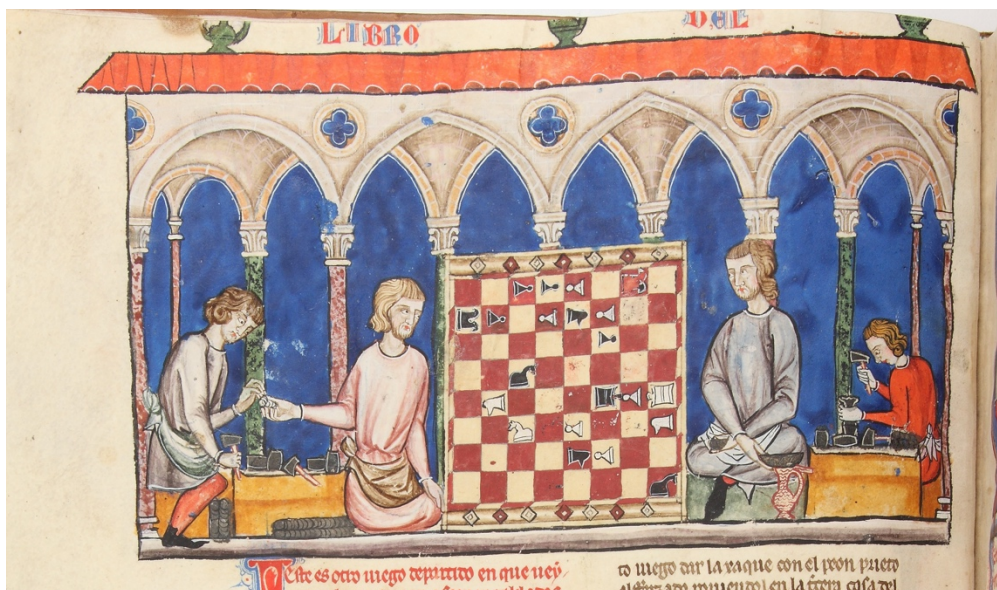 LIBRO DEL
Este es otro iuego departido en que uey
to iuego dar la xaque con el peon prieto
en la casa del